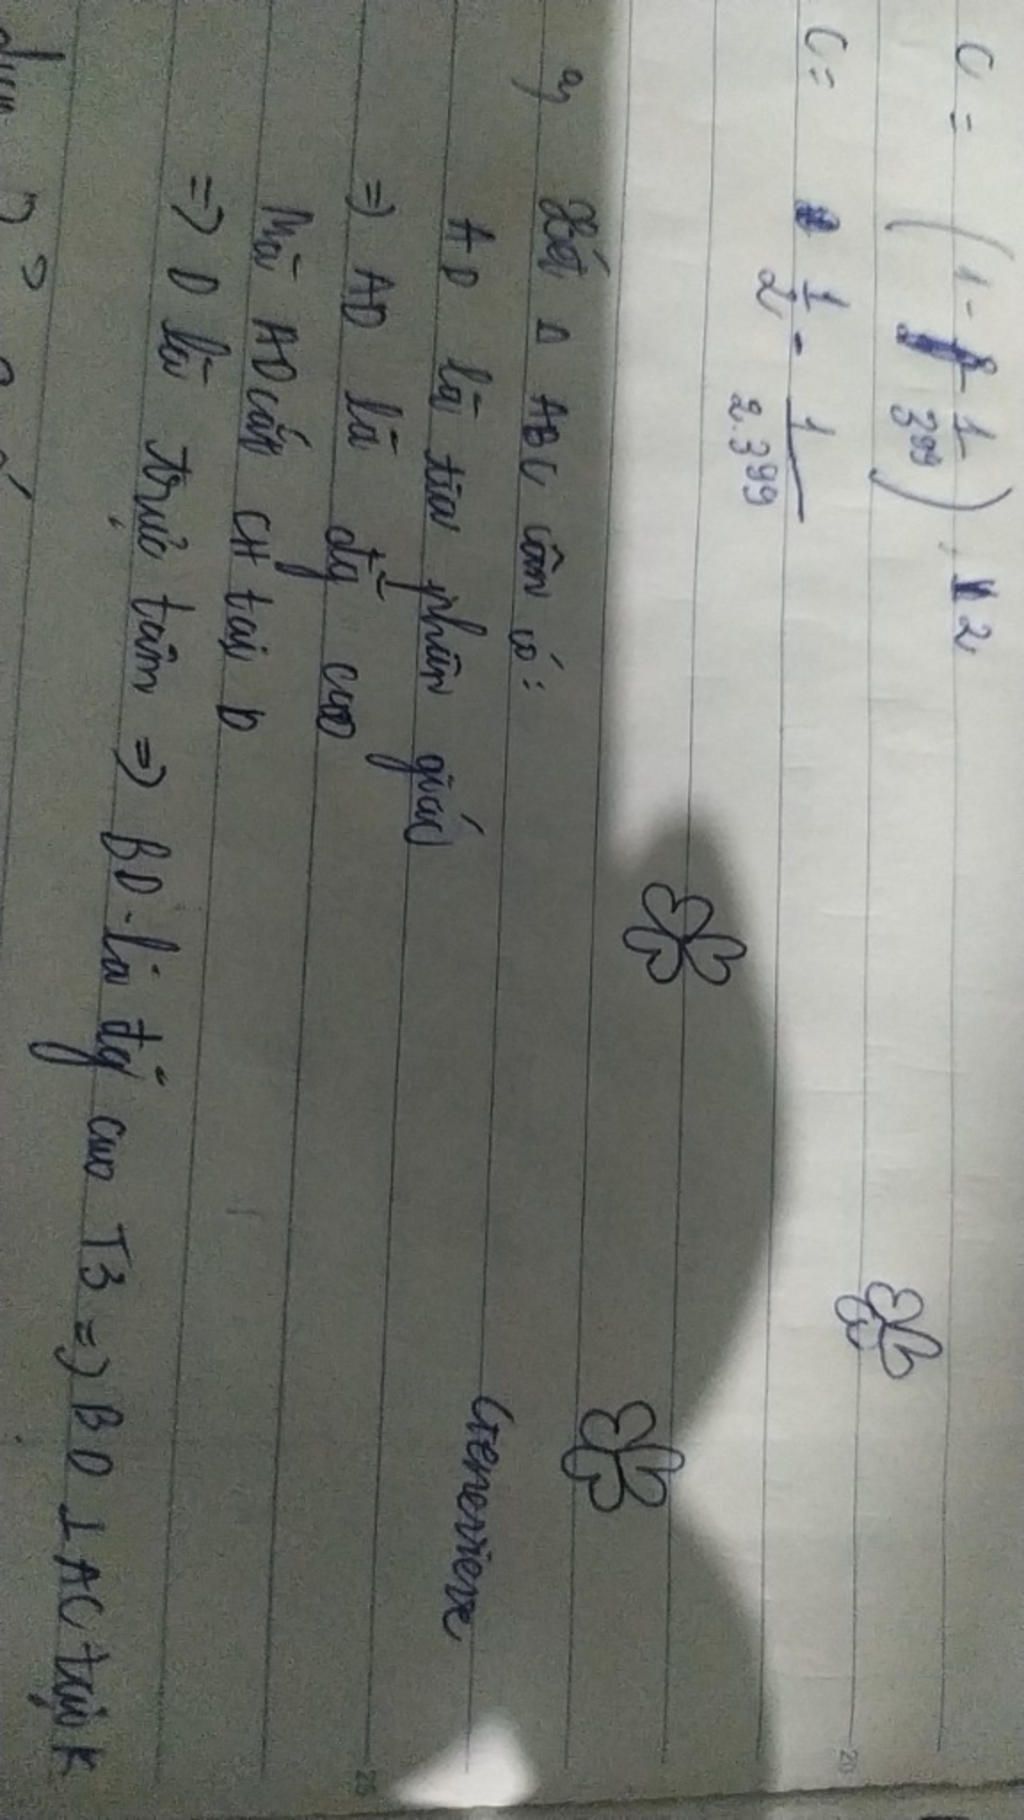 C = (1 - 1/3^99) . 2
C = 1/2 - 1/2.3^99
a, Xét Δ ABC cân có:
AD là tia phân giác
=> AD là đg̀ cao
Mà AD cắt CH tại D
=> D là trực tâm => BD là đg̀ cao T3 => BD ⊥ AC tại K
Genevieve
20
25